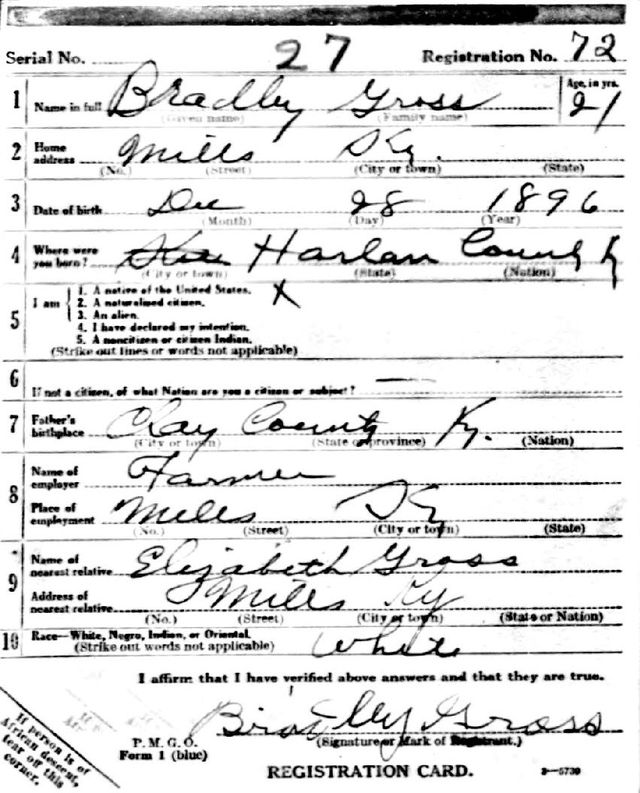 Serial No. 27 Registration No. 72
1 Name in full Bradley Gross Age, in yrs. 21
(Given name) (Family name)
2 Home address Mills Ky.
(No.) (Street) (City or town) (State)
3 Date of birth Dec 28 1896
(Month) (Day) (Year)
4 Where were you born? Harlan County K
(City or town) (State) (Nation)
5 I am
1. A native of the United States. X
2. A naturalized citizen.
3. An alien.
4. I have declared my intention.
5. A noncitizen or citizen Indian.
(Strike out lines or words not applicable)
6 If not a citizen, of what Nation are you a citizen or subject? —
7 Father's birthplace Clay County Ky.
(City or town) (State or province) (Nation)
8 Name of employer Farmer
Place of employment Mills Ky
(No.) (Street) (City or town) (State)
9 Name of nearest relative Elizabeth Gross
Address of nearest relative Mills Ky
(No.) (Street) (City or town) (State or Nation)
10 Race—White, Negro, Indian, or Oriental. White
(Strike out words not applicable)
I affirm that I have verified above answers and that they are true.
Bradley Gross
(Signature or Mark of Registrant.)
P. M. G. O.
Form 1 (blue)
REGISTRATION CARD. 3—5730
If person is of
African descent,
tear off this
corner.